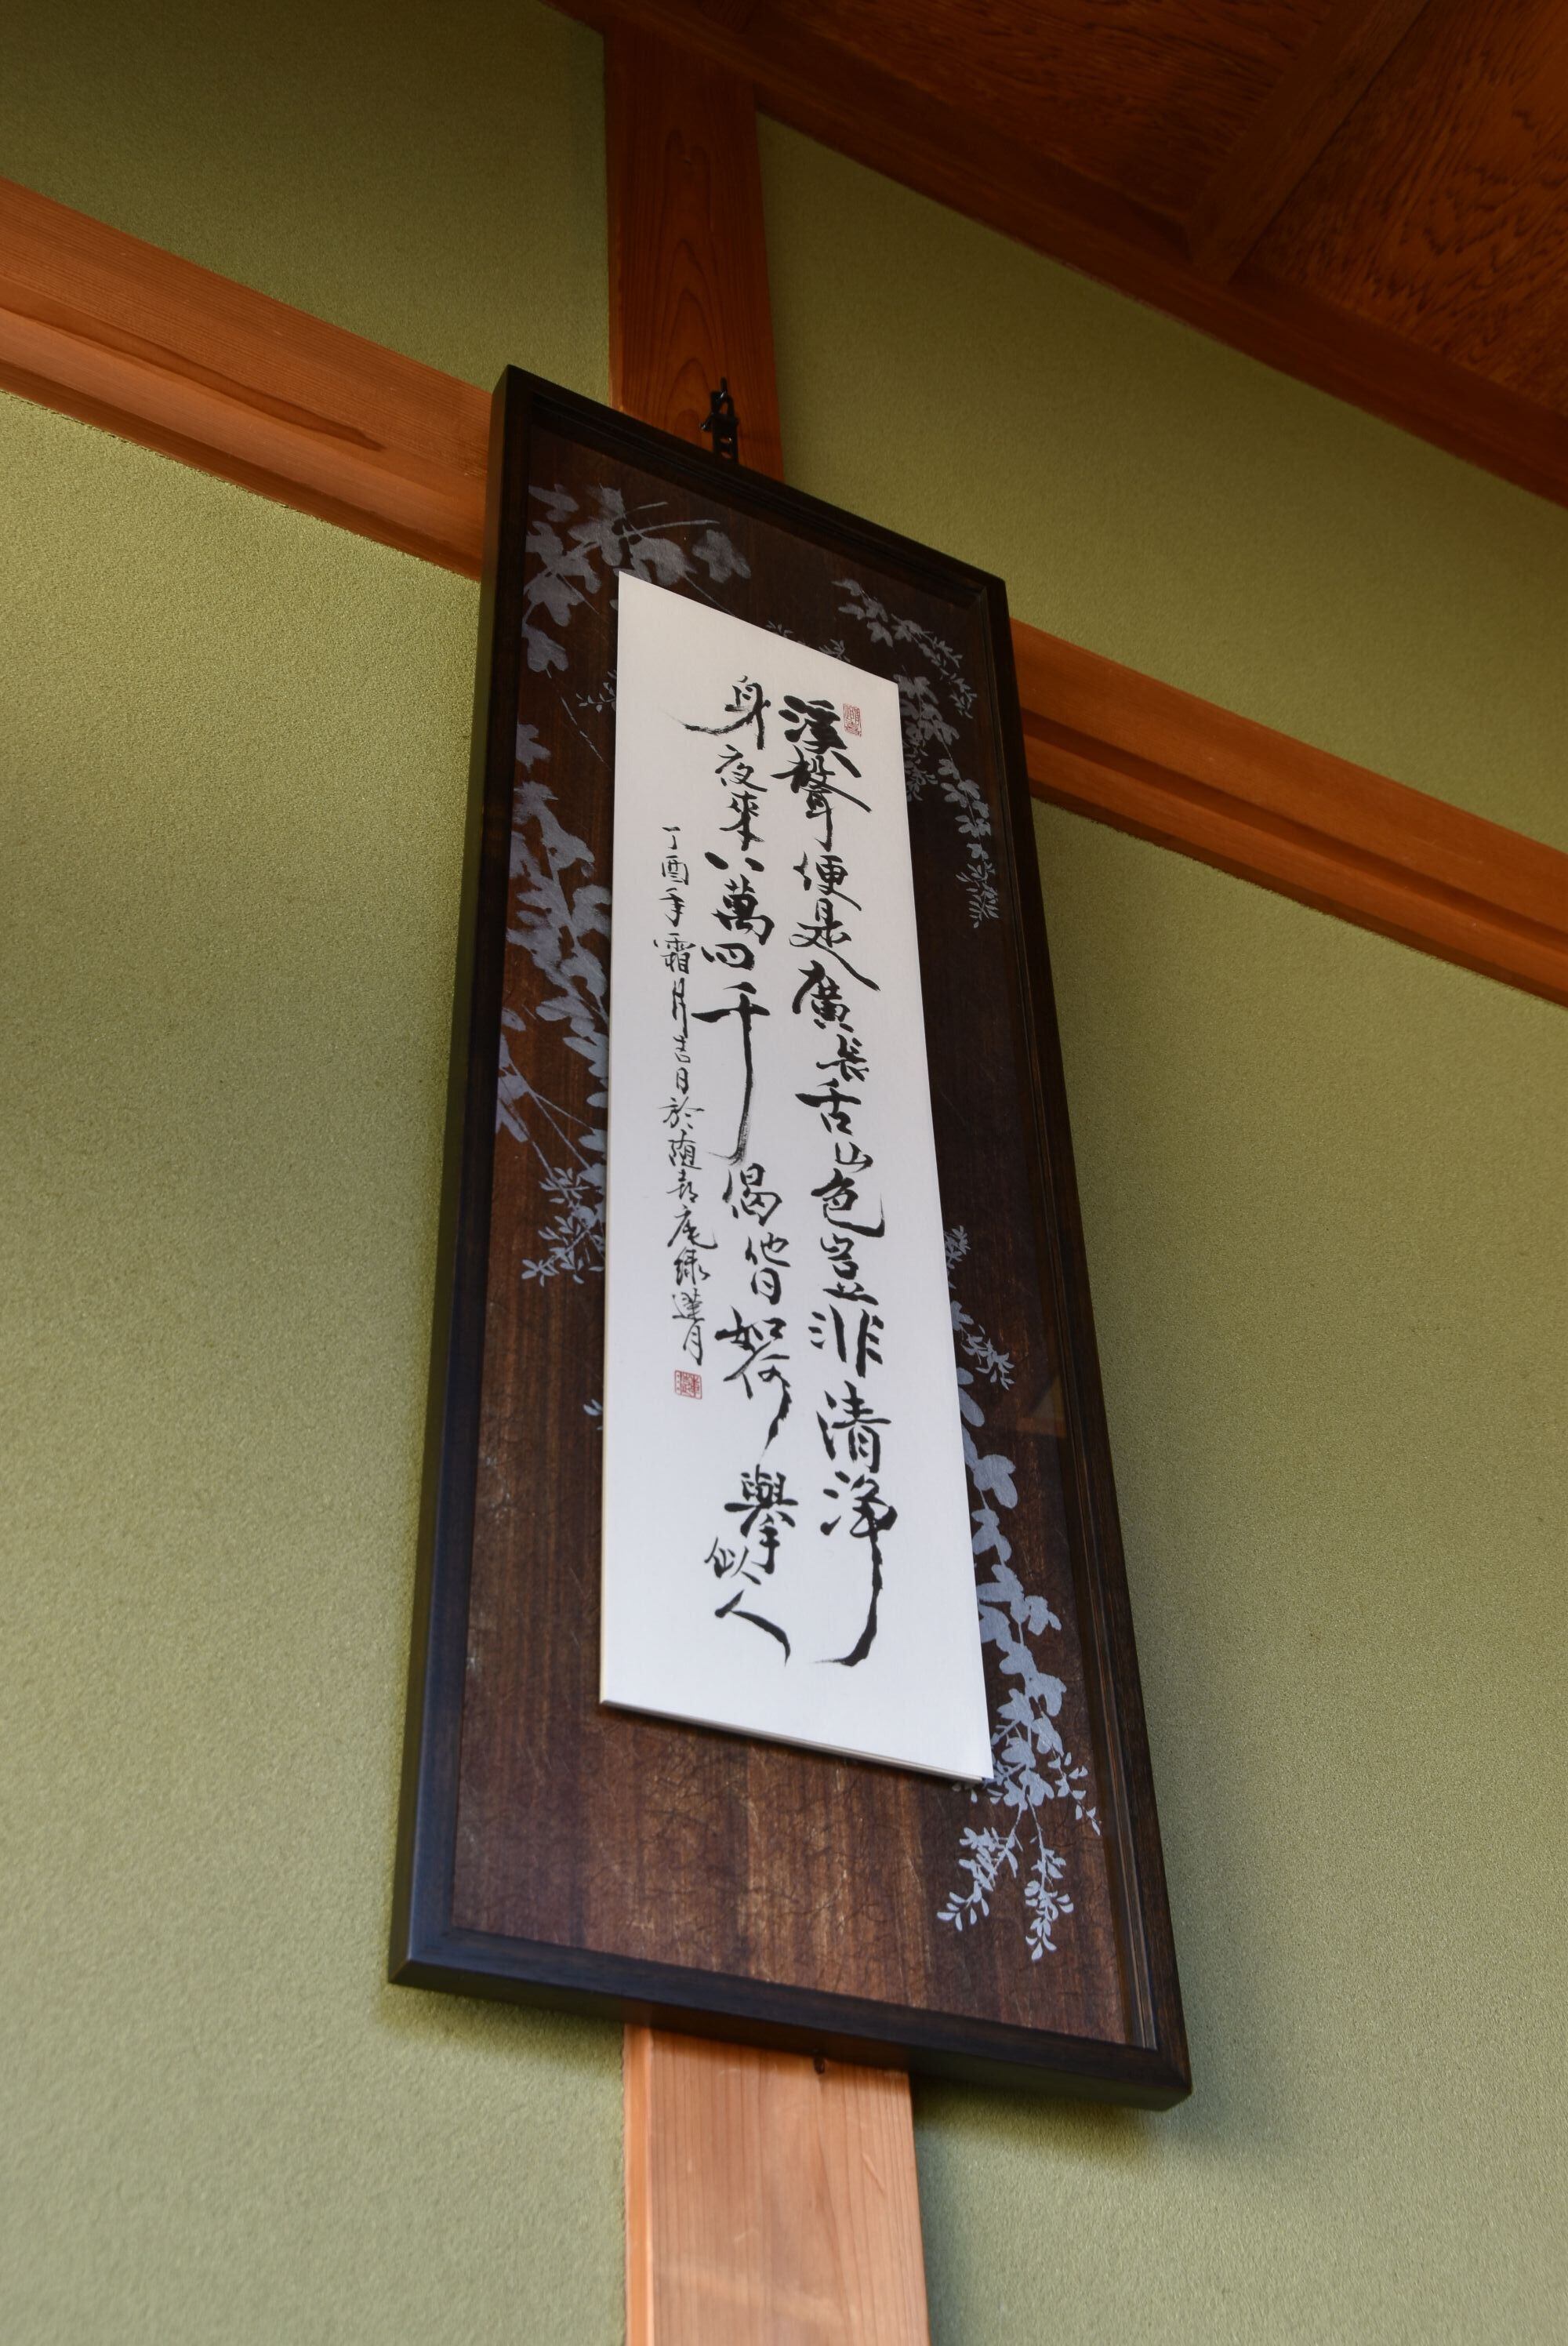 溪聲便是廣長舌山色豈非清浄
身夜來八萬四千偈他日如何擧似人
丁酉年霜月吉日於随却庵緑蓮月